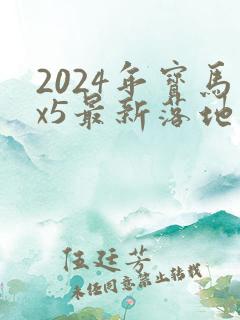 2024年寶馬
x5最新落地
伍廷芳
未经同意禁止转载